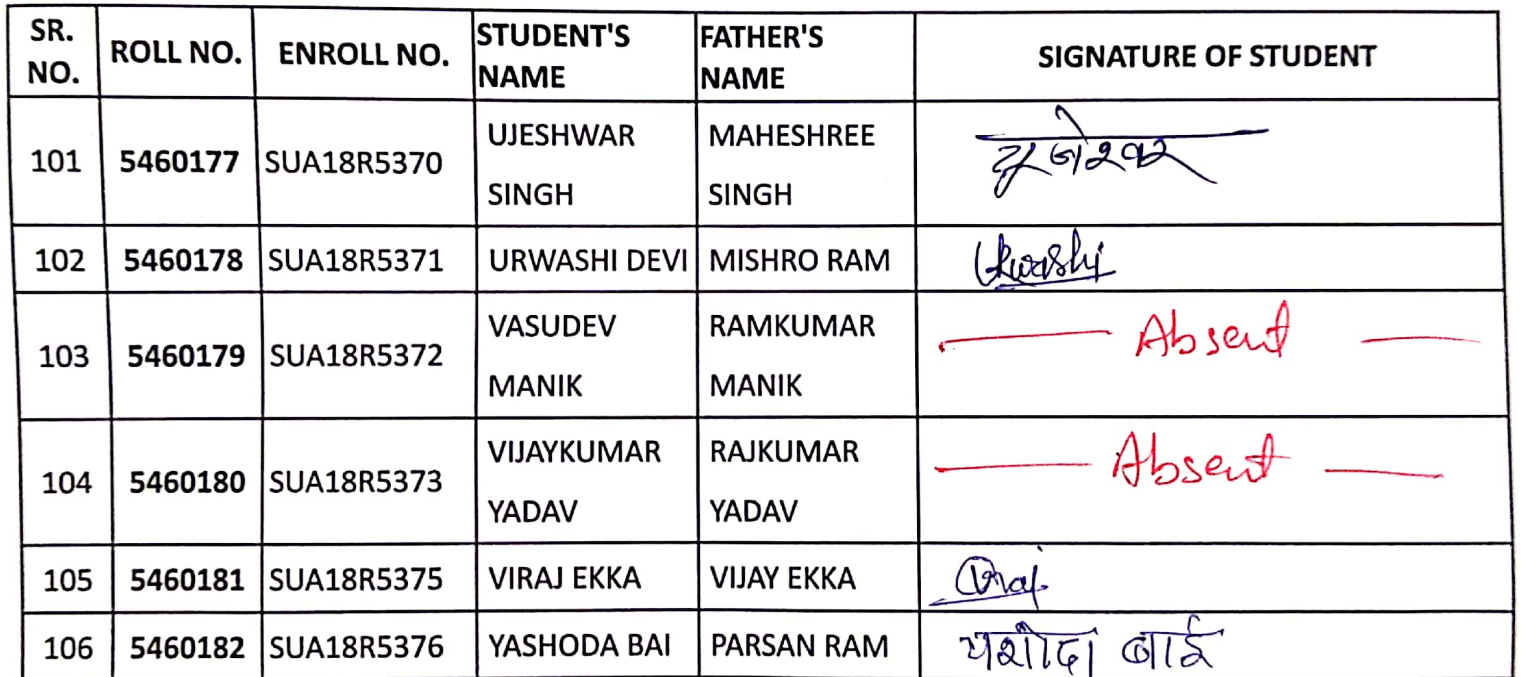 SR. NO. ROLL NO. ENROLL NO. STUDENT'S NAME FATHER'S NAME SIGNATURE OF STUDENT
101 5460177 SUA18R5370 UJESHWAR SINGH MAHESHREE SINGH
102 5460178 SUA18R5371 URWASHI DEVI MISHRO RAM Urwashi
103 5460179 SUA18R5372 VASUDEV MANIK RAMKUMAR MANIK Absent
104 5460180 SUA18R5373 VIJAYKUMAR YADAV RAJKUMAR YADAV Absent
105 5460181 SUA18R5375 VIRAJ EKKA VIJAY EKKA Viraj
106 5460182 SUA18R5376 YASHODA BAI PARSAN RAM यशोदा बाई